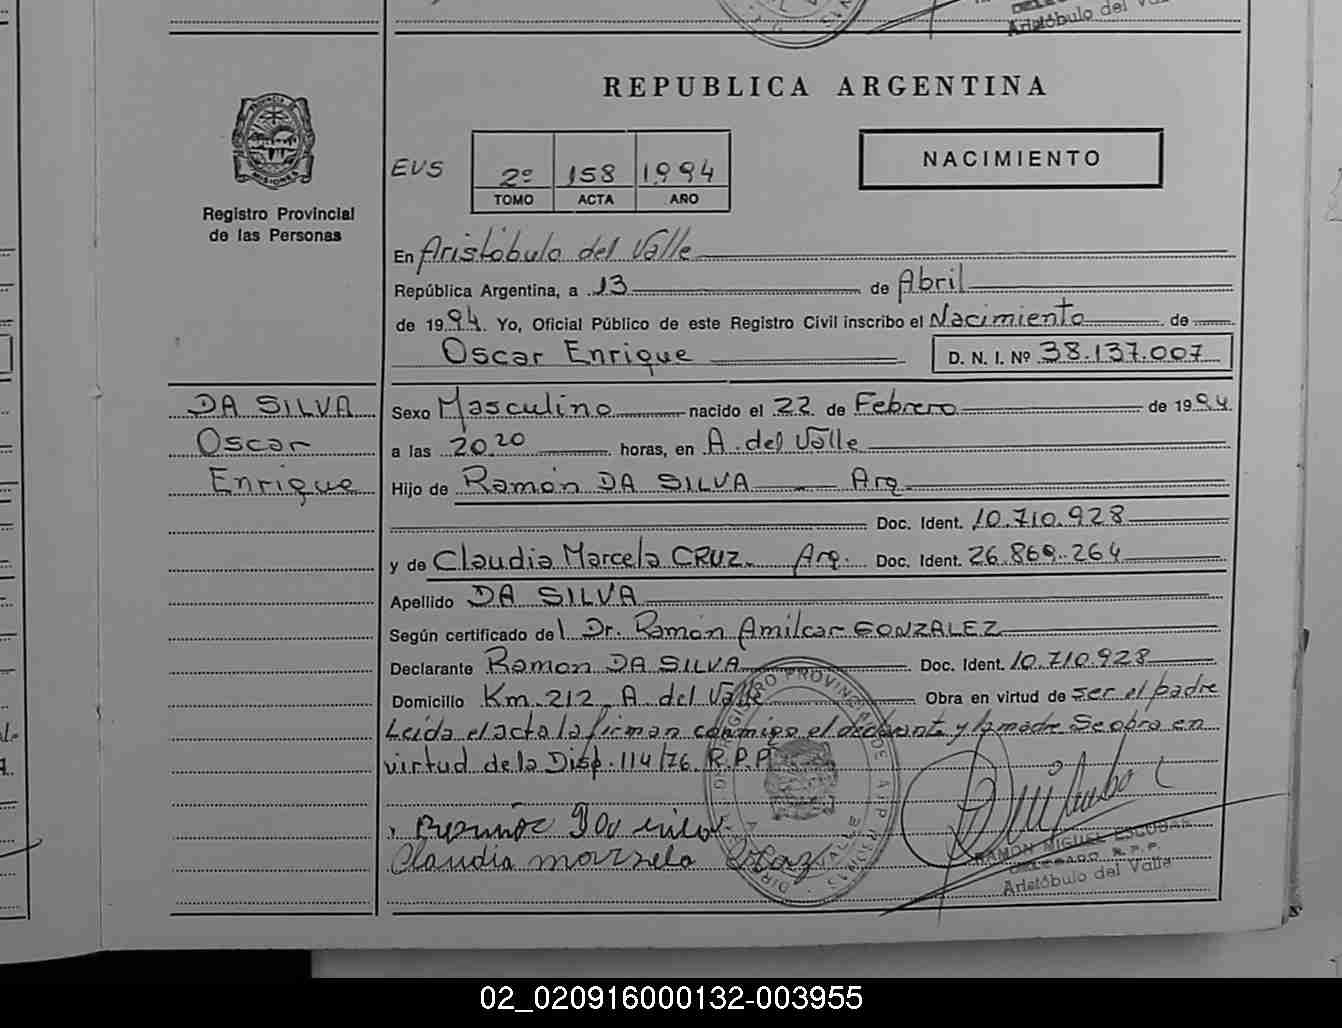 Aristóbulo del Valle
REPUBLICA ARGENTINA
PROVINCIA DE
MISIONES
EVS
2º 158 1994
TOMO ACTA AÑO
NACIMIENTO
Registro Provincial
de las Personas
En Aristóbulo del Valle
República Argentina, a 13 de Abril
de 1994. Yo, Oficial Público de este Registro Civil inscribo el Nacimiento de
Oscar Enrique D. N. I. Nº 38.137.007
DA SILVA
Oscar
Enrique
Sexo Masculino nacido el 22 de Febrero de 1994
a las 20.20 horas, en A. del Valle
Hijo de Ramón DA SILVA Arg
Doc. Ident. 10.710.928
y de Claudia Marcela CRUZ. Arg. Doc. Ident. 26.869.264
Apellido DA SILVA
Según certificado del Dr. Ramón Amilcar GONZALEZ
Declarante Ramon DA SILVA Doc. Ident. 10.710.928
Domicilio Km. 212 A. del Valle Obra en virtud de ser el padre
Leída el acta la firman conmigo el declarante y la madre Se obra en
virtud de la Disp. 114/76 R.P.P.
Claudia
RAMON MIGUEL ESCOBAR
DELEGADO R.P.P.
Aristóbulo del Valle
02_020916000132-003955